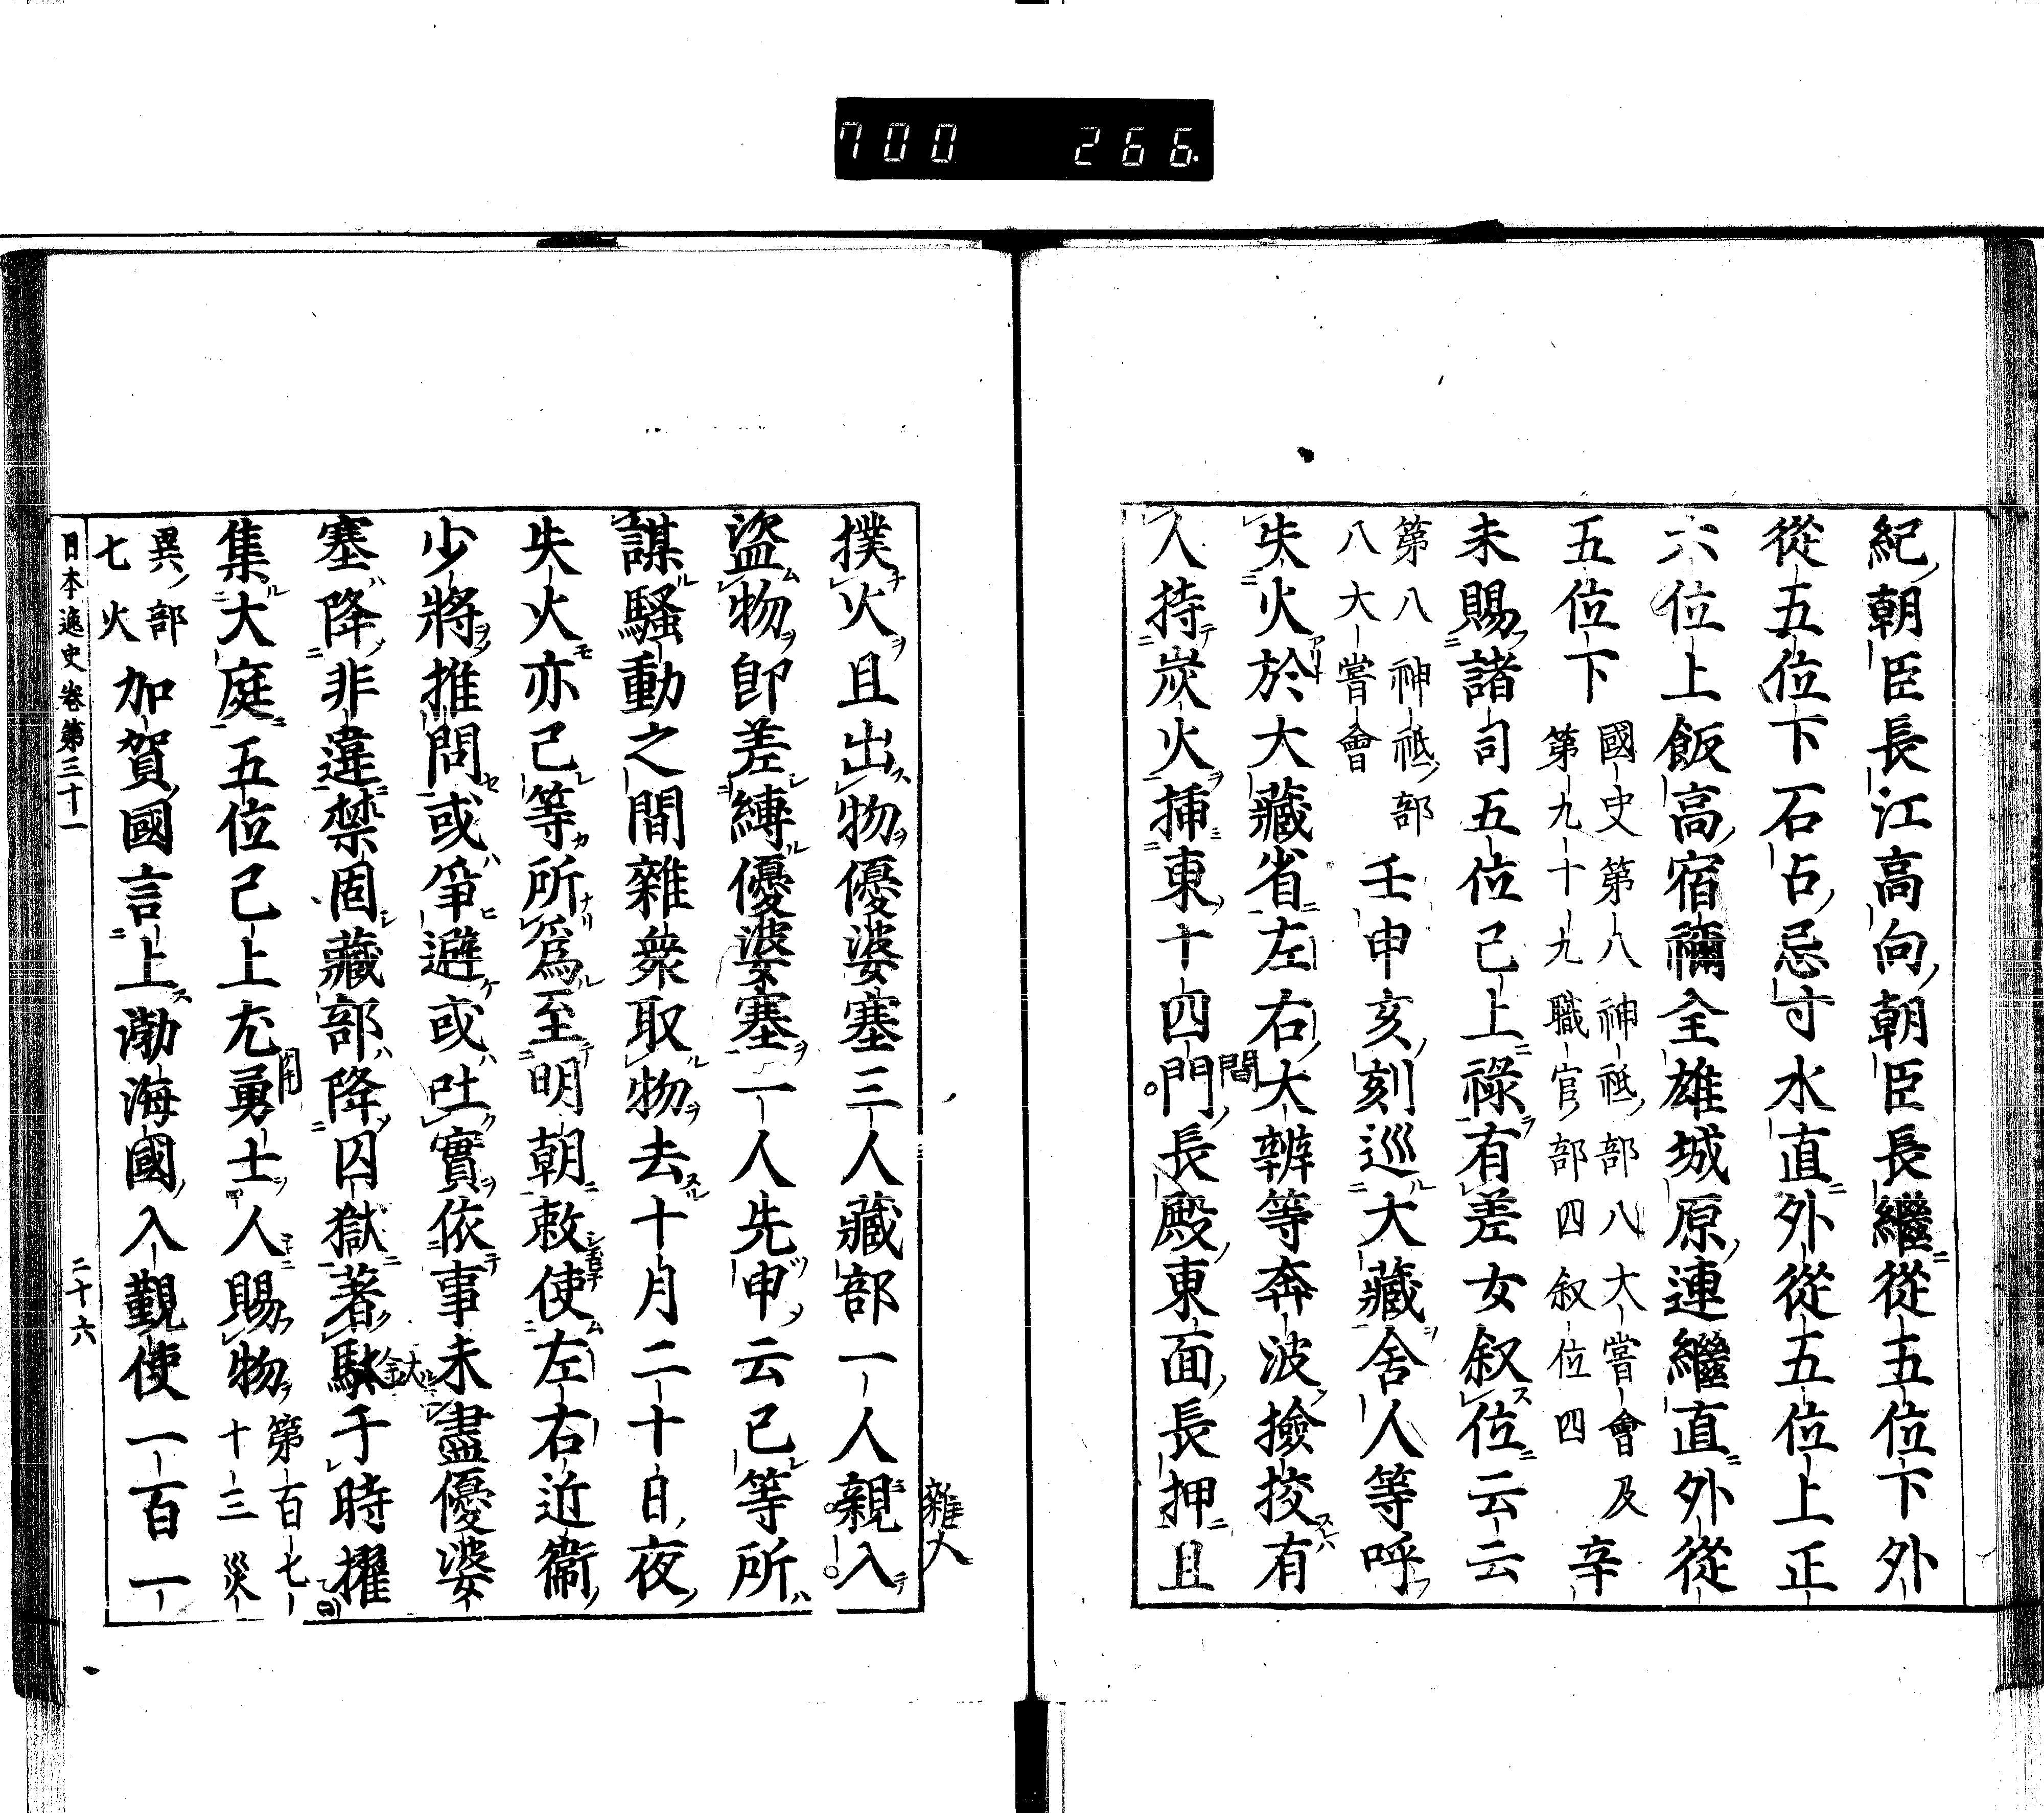 700 266.
紀朝臣長江高向朝臣長繼從五位下外
從五位下石占忌寸水直外從五位上正
六位上飯高宿禰全雄城原連繼直外從
五位下
國史第八神祇部八大嘗會及
第九十九職官部四叙位四
辛
未賜諸司五位已上祿有差女叙位云云
第八神祇部
八大嘗會
壬申亥刻巡大藏舍人等呼
失火於大藏省左右大辨等奔波撿挍有
人持炭火挿東十四門長殿東面長押且
間
撲火且出物優婆塞三人藏部一人親入
雜人
盜物卽差縛優婆塞一人先申云已等所
謀騷動之間雜衆取物去十月二十日夜
失火亦己等所爲至明朝敕使左右近衞
少將推問或爭避或吐實依事未盡優婆
塞降非違禁固藏部降囚獄著馱于時擢
釱
集大庭五位已上尤勇士人賜物
第百七
十三災
異部
七火
加賀國言上渤海國入覲使一百一
日本逸史卷第三十一
二十六